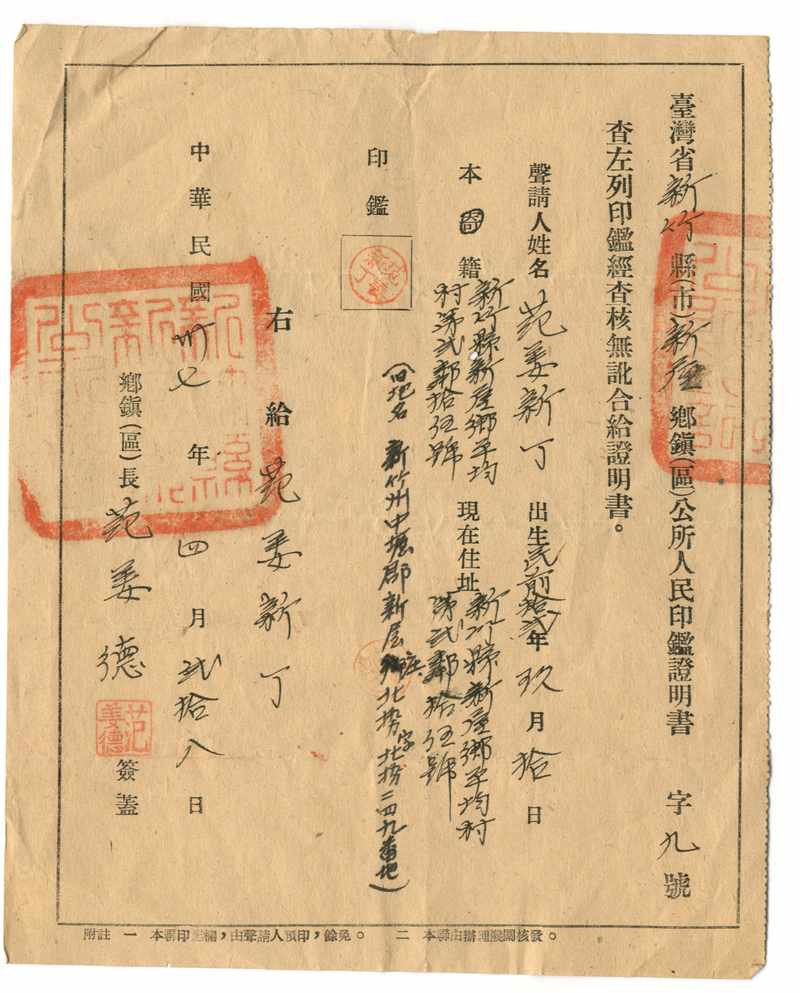 臺灣省新竹縣(市)新屋鄉鎮(區)公所人民印鑑證明書 字九號
查左列印鑑經查核無訛合給證明書。
聲請人姓名 范姜新丁 出生民前拾弍年玖月拾日
本籍 新竹縣新屋鄉平均村第弍鄰拾伍號 現在住址 新竹縣新屋鄉平均村第弍鄰拾伍號
(旧地名 新竹州中壢郡新屋庄北勢字北勢二四九番地)
印鑑
右給 范姜新丁
中華民國卅七年四月弍拾八日
鄉鎮(區)長 范姜德 簽蓋
范姜德
附註 一 本 印 欄,由聲請人預印,餘免。 二 本 由辦理機關核發。